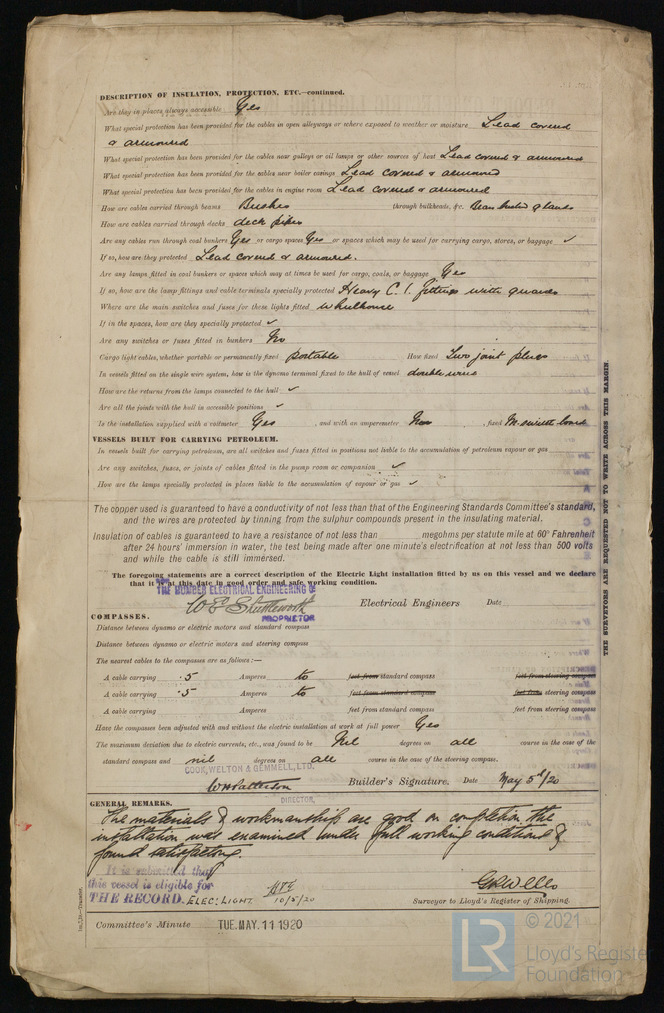 DESCRIPTION OF INSULATION, PROTECTION, ETC.—continued.
Are they in places always accessible Yes
What special protection has been provided for the cables in open alleyways or where exposed to weather or moisture Lead covered
& armoured
What special protection has been provided for the cables near galleys or oil lamps or other sources of heat Lead covered & armoured
What special protection has been provided for the cables near boiler casings Lead covered & armoured
What special protection has been provided for the cables in engine room Lead covered & armoured
How are cables carried through beams Bushes through bulkheads, &c. glands
How are cables carried through decks deck pipes
Are any cables run through coal bunkers Yes or cargo spaces Yes or spaces which may be used for carrying cargo, stores, or baggage ✓
If so, how are they protected Lead covered & armoured.
Are any lamps fitted in coal bunkers or spaces which may at times be used for cargo, coals, or baggage Yes
If so, how are the lamp fittings and cable terminals specially protected Heavy C.I. fittings with guards
Where are the main switches and fuses for these lights fitted wheelhouse
If in the spaces, how are they specially protected ✓
Are any switches or fuses fitted in bunkers No
Cargo light cables, whether portable or permanently fixed portable How fixed Two joint plugs
In vessels fitted on the single wire system, how is the dynamo terminal fixed to the hull of vessel double wire
How are the returns from the lamps connected to the hull ✓
Are all the joints with the hull in accessible positions ✓
Is the installation supplied with a voltmeter Yes , and with an amperemeter , fixed M. switch board
VESSELS BUILT FOR CARRYING PETROLEUM.
In vessels built for carrying petroleum, are all switches and fuses fitted in positions not liable to the accumulation of petroleum vapour or gas
Are any switches, fuses, or joints of cables fitted in the pump room or companion ✓
How are the lamps specially protected in places liable to the accumulation of vapour or gas ✓
The copper used is guaranteed to have a conductivity of not less than that of the Engineering Standards Committee's standard,
and the wires are protected by tinning from the sulphur compounds present in the insulating material.
Insulation of cables is guaranteed to have a resistance of not less than megohms per statute mile at 60° Fahrenheit
after 24 hours' immersion in water, the test being made after one minute's electrification at not less than 500 volts
and while the cable is still immersed.
The foregoing statements are a correct description of the Electric Light installation fitted by us on this vessel and we declare
that it is at this date in good order and safe working condition.
THE HUMBER ELECTRICAL ENGINEERING Co
W E Shuttleworth Electrical Engineers Date
PROPRIETOR
COMPASSES.
Distance between dynamo or electric motors and standard compass
Distance between dynamo or electric motors and steering compass
The nearest cables to the compasses are as follows:—
A cable carrying .5 Amperes to feet from standard compass feet from steering compass
A cable carrying .5 Amperes to feet from standard compass feet from steering compass
A cable carrying Amperes feet from standard compass feet from steering compass
Have the compasses been adjusted with and without the electric installation at work at full power Yes
The maximum deviation due to electric currents, etc., was found to be Nil degrees on all course in the case of the
standard compass and nil degrees on all course in the case of the steering compass.
COOK, WELTON & GEMMELL, LTD.
W H Patterson Builder's Signature. Date May 5th/20
DIRECTOR.
GENERAL REMARKS.
The materials & workmanship are good on completion the
installation was examined under full working conditions &
found satisfactory.
It is submitted that
this vessel is eligible for
THE RECORD. ELEC. LIGHT. 10/5/20
Surveyor to Lloyd's Register of Shipping.
Committee's Minute TUE. MAY. 11 1920
THE SURVEYORS ARE REQUESTED NOT TO WRITE ACROSS THIS MARGIN.
LR
© 2021
Lloyd's Register
Foundation